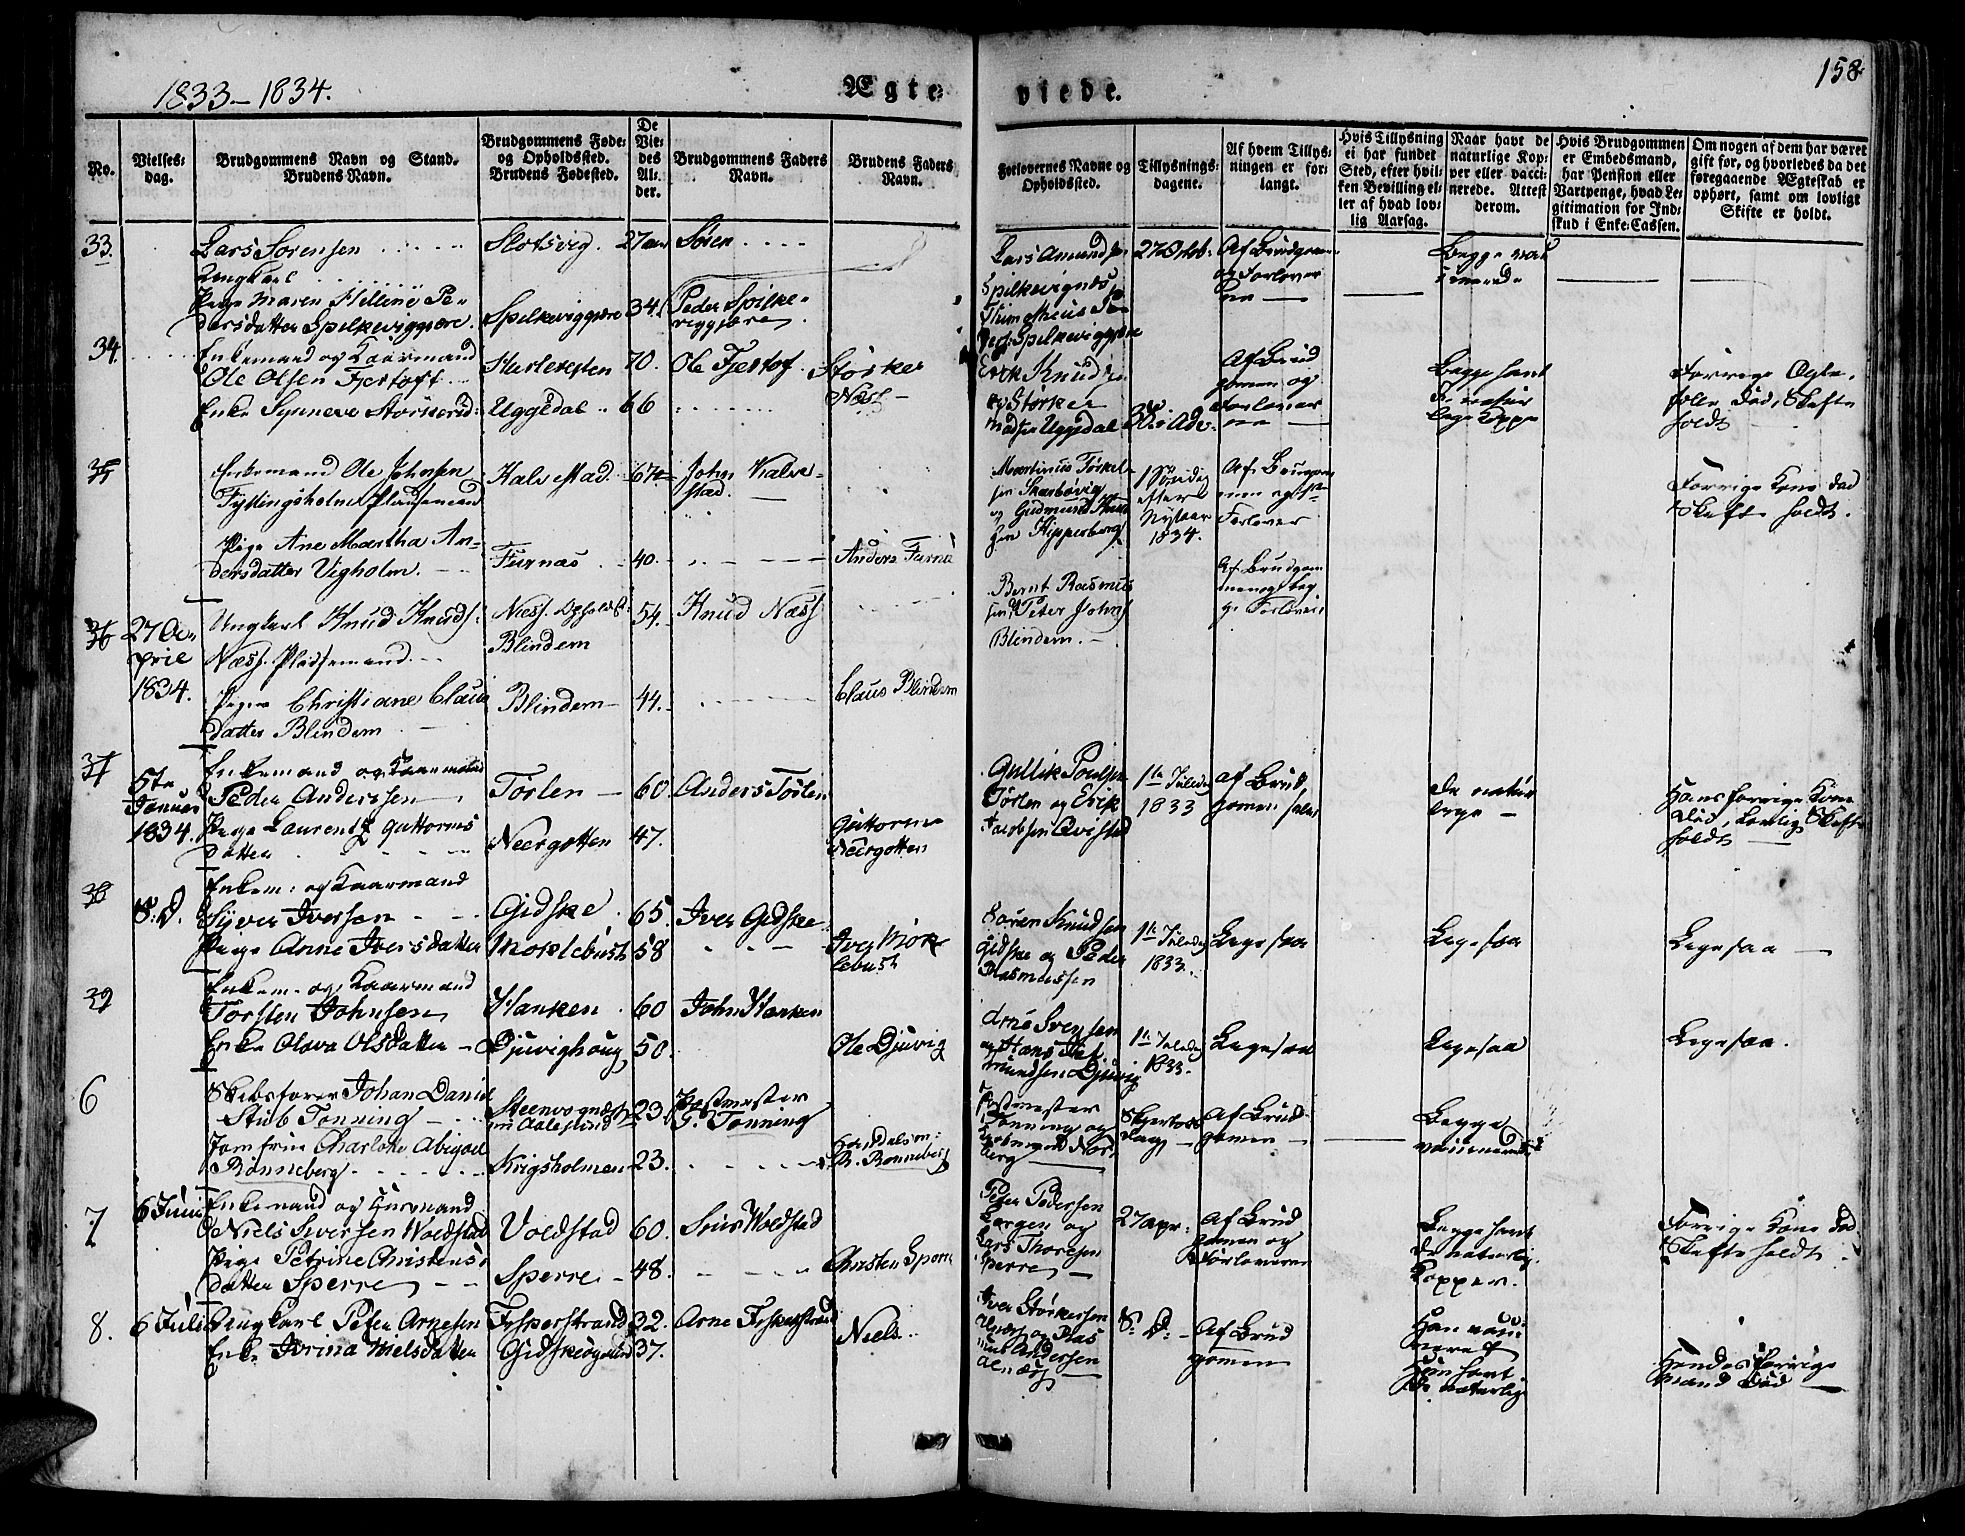 1833–1834.
Ægte
viede.
158
No.
Vielses-
dag.
Brudgommens Navn og Stand.
Brudens Navn.
Brudgommens Føde-
og Opholdssted.
Brudens Fødested.
De
Vie-
des
Al-
der.
Brudgommens Faders
Navn.
Brudens Faders
Navn.
Forlovernes Navne og
Opholdssted.
Tillysnings-
dagene.
Af hvem Tillys-
ningen er for-
langt.
Hvis Tillysning
ei har fundet
Sted, efter hvil-
ken Bevilling el-
ler af hvad lov-
lig Aarsag.
Naar havt de
naturlige Kop-
per eller vacci-
nerede. Attest
derom.
Hvis Brudgommen
er Embedsmand,
har Pension eller
Vartpenge, hvad Le-
gitimation for Ind-
skud i Enke-Cassen.
Om nogen af dem har været
gift før, og hvorledes da det
foregaaende Ægteskab er
ophørt, samt om lovligt
Skifte er holdt.
33.
Lars Sørensen
Ungkarl
Pige Maren Pe-
dersdatter Spilkeviggjære.
Slotsvig
Spelkeviggjære
27 aar
34
Søren
Peder Spilke-
viggjære
Lars Amundsen
Spilkevignes
27 Octob:
Af Brudgom
og Forlover
ne
Begge vac
inerede
34.
Enkemand og Kaarmand
Ole Olsen Fjertoft
Enke Synneve
Uggedal
70.
66
Ole Fjertof
Storker
Næss
Erik Knudsen
og Storker
Madsen Uggedal
Af Brud
gomen og
Forlover
ne
Begge havt
de natur
lige Kopper
Forrige Egte-
fole død, Skifte
holdt
35
Enkemand Ole Johnsen
Fyllingsholmen Pladsemand
Pige Ane Martha An-
dersdatter Vigholm.
Kalvestad
Furnæs
67
40
John Kalve-
stad.
Anders Furnæ
Martinus Torkel-
sen Skarbøvig
og Gudmund
sen Klipperborg
1 Søndag
efter
Nytaar
1834.
Forlover
Forrige Kone død
Skifte holdt.
36
27 A-
pril
1834.
Ungkarl Knud Knuds:
Næss Pladsemand
Pigen Christiane Claus
datter Blindem
Næss. Opholdst
Blindem
Blindem
54.
44.
Knud Næss
Claus Blindem
Bernt Rasmus
sen Peter Johns
Blindem.
Af Brudgom
menog beg
ge Forlovere
37
5te
Januar
1834.
Enkemand og Kaarmand
Peder Anderssen
Pige Laurentz Guttorms
datter
Torlen
Neergotten
60.
47.
Anders Torlen
Guttorm
Neergotten
Gullik Poulsen
Torlen og Erik
Jacobsen Qvistad
1te Juledag
1833
af Brud
gomen selv
de natur
lige
Hans forrige Kone
Død, Lovlig Skifte
holdt
38
S: D.
Enkem: og Kaarmand
Syver Iversen
Pige Anne Iversdatter
Gidske
Moklebust
65.
58
Iver Gidske
Iver Mok
lebust
Søren Knudsen
Gidske og Peder
Rasmussen
1te Juledag
1833.
Ligesaa
Ligesaa
Ligesaa
39
Enkem. og Kaarmand
Torsten Johnsen
Enke Olava Olsdatter
Hanken
Djuvighoug
60
50.
John Hanken
Ole Djuvig
Arne Svensen
og Hans
mundsen Djuvig
1te Juledag
1833.
Ligesaa
Ligesaa
Ligesaa.
6
Skibsfører Johan Daniel
Stub Tønning
Jomfrue Charlotte Abigael
Rønneberg
Steenvognæs
Krigsholmen
23
23.
Postmester
P. Tønning
Handelsm:
R. Rønneberg
Postmester
Tønning og
berg
Skjertors
dag
Af Brud
gomen
Begge
vaccinerede
7
6 Juni
Enkemand og Kurmand
Niels Sivertsen Voldstad
Pige Petrine Christens-
datter Sperre
Voldstad
Sperre
60.
48.
Voldstad
Christen Sperre
Peter Pedersen
Lorgen og
Lars Thoresen
Sperre
27 Apr:
Af Brud
gomen og
Forloverne
Begge havt
de naturlig
Kopper.
Forrige Kone død
Skifte holdt
8.
6 Juli
Ungkarl Peter Arnesen
Enke Ivrina Nielsdatter
Fisperstrand
Gidskeøgaard
32.
37.
Arne Fisperstrand
Niels
Iver Storkersen
Alnæs og Ras
mus Andersen
Alnæs
S: D:
Af Brud
gomen
Han vac
sineret
Hun havt
de naturlig
Hendes forrige
Mand død